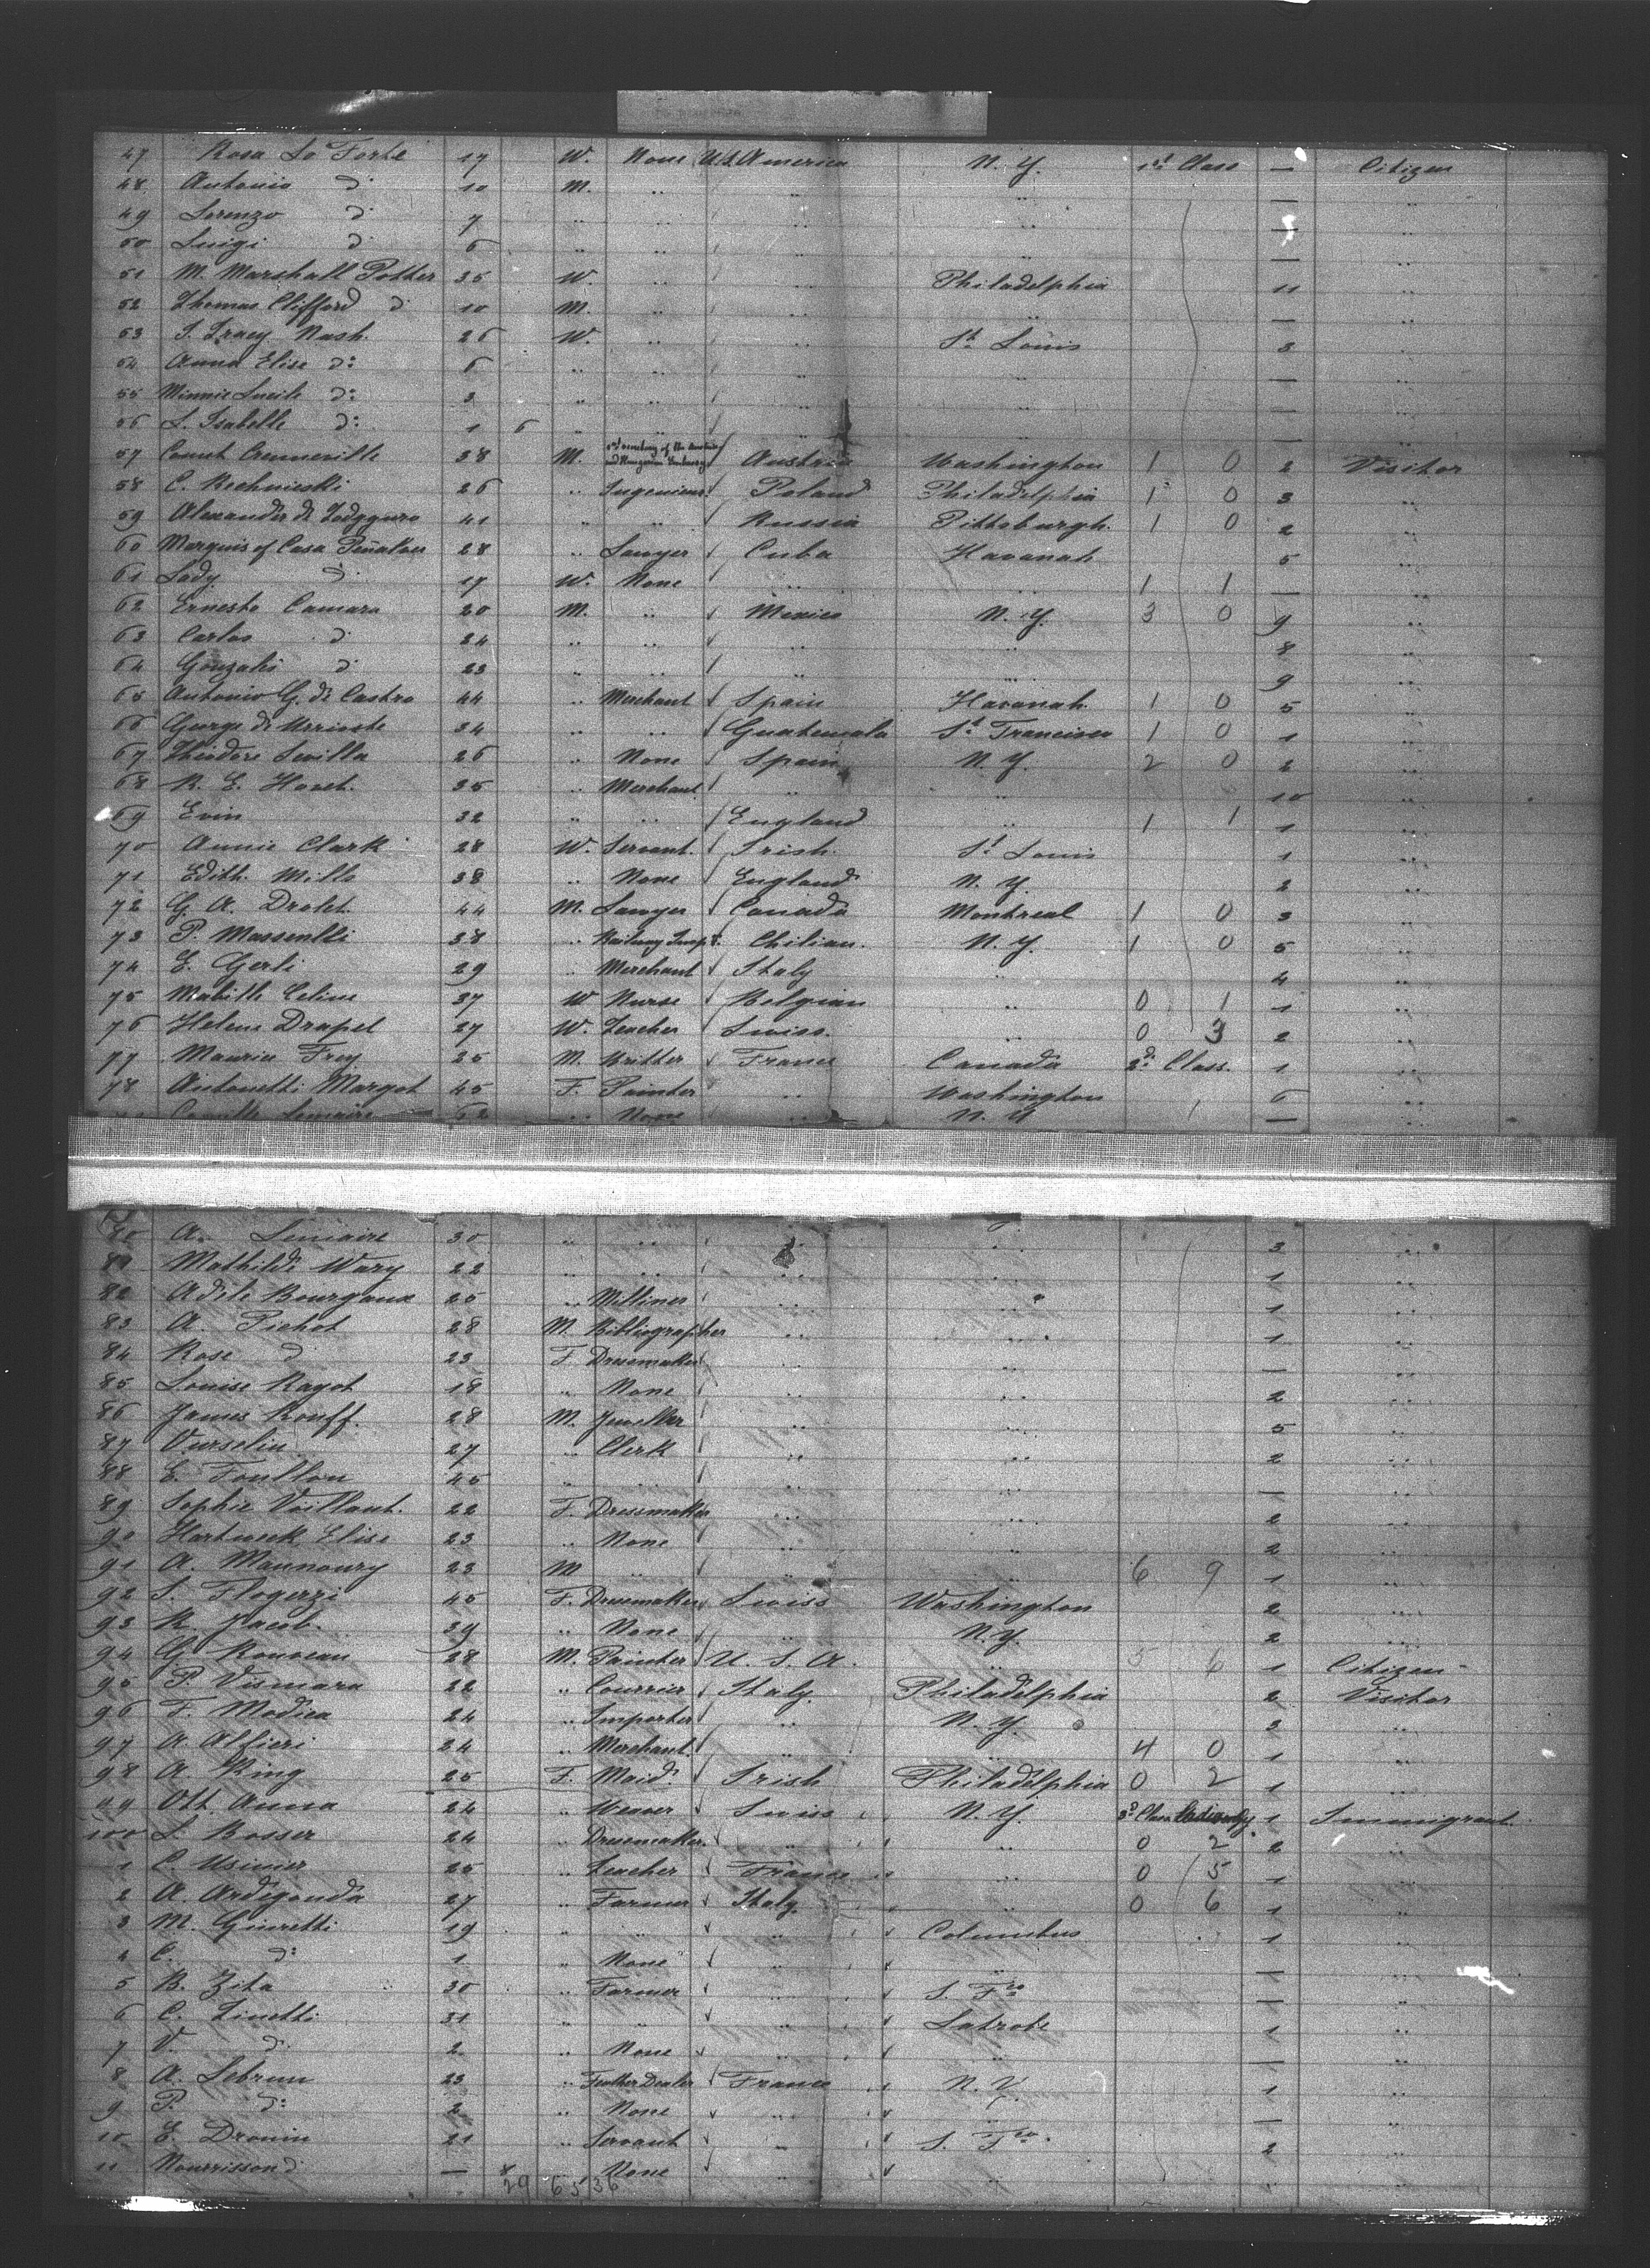 47 Rosa Lo Forte 17 W. None U.S. America N. Y. 1st Class — Citizen
48 Antonio d° 10 M. " " " — "
49 Lorenzo d° 7 " " " " — "
50 Luigi d° 6 " " " " — "
51 M. Marshall Potter 35 W. " " Philadelphia 11 "
52 Thomas Clifford d° 10 M. " " " — "
53 T. Tracy Nash. 26 W. " " St. Louis 3 "
54 Anna Elise d° 6 " " " " — "
55 Minnie Lucile d° 3 " " " " — "
56 L. Isabelle d° 1 6 " " " " — "
57 Count Crenneville 38 M. Austria Washington 1 0 2 Visitor
58 C. 26 " Ingenieur Poland Philadelphia 1 0 3 "
59 Alexander de 41 " " Russia Pittsburgh. 1 0 2 "
60 Marquis of Casa Peñalver 28 " Lawyer Cuba Havanah 5 "
61 Lady d° 17 W. None " " 1 1 — "
62 Ernesto Camara 20 M. " Mexico N. Y. 3 0 9 "
63 Carlos d° 24 " " " " 8 "
64 Gonzales d° 23 " " " " 9 "
65 Antonio G. de Castro 44 " Merchant Spain Havanah. 1 0 5 "
66 George de Urrioste 34 " " Guatemala St. Francisco 1 0 1 "
67 Theodore Sevilla 26 " None Spain N. Y. 2 0 2 "
68 R. E. 35 " Merchant " " 10 "
69 Evin 32 " " England " 1 1 1 "
70 Annie Clark 28 W. Servant. Irish. St. Louis 1 "
71 Edith. Mills 38 " None England N. Y. 2 "
72 G. A. Drolet. 44 M. Lawyer Canada Montreal 1 0 3 "
73 P. Massenlli 38 " Railway Chilian. N. Y. 1 0 5 "
74 E. Gerli 29 " Merchant Italy " 4 "
75 Mabille Celine 37 W Nurse Belgian " 0 1 1 "
76 Helene Drapel 27 W. Teacher Swiss. " 0 3 2 "
77 Maurice Frey 25 M. France Canada 2d Class. 1 "
78 Antonetti Margot 45 F. Painter " Washington 6 "
Camille Lemaire 52 " None " N. Y — "
80 A. Lemaire 30 " " " " 3 "
81 Mathilde Wary 22 " " " " 1 "
82 Adele Bourgaux 25 " Milliner " " 1 "
83 A. Pichot 28 M. Bibliographer " " 1 "
84 Rose d° 23 F. Dressmaker " " — "
85 Louise Ragot 18 " None " " 2 "
86 James Rouff. 28 M. Jeweller " " 5 "
87 Vurselin 27 " Clerk " " 2 "
88 E. Foullon 45 " " " " — "
89 Sophie Vaillant. 22 F. Dressmaker " " 2 "
90 Hartweck Elise 23 " None " " 2 "
91 A. Maunoury 23 M " " " 6 9 1 "
92 S. Flogerzi 45 F. Dressmaker Swiss Washington 2 "
93 R. Jacob. 39 " None " N. Y. 2 "
94 G Rouveau 28 M. Painter U. S. A. " 5 6 1 Citizen
95 P. Vismara 22 " Courrier Italy. Philadelphia 2 Visitor
96 F. Modica 24 " Importer " N. Y. 3 "
97 A. Alfieri 24 " Merchant. " " 4 0 1 "
98 A. King 25 F. Maid. Irish Philadelphia 0 2 1 "
99 Ott. Anna 24 " Weaver Swiss N. Y. 3d Class 1 Immigrant.
100 L. Bosser 24 " Dressmaker. " " 0 2 2 "
1 C. Usinier 25 " Teacher France " 0 5 1 "
2 A. Ardigonda 27 " Farmer Italy. " 0 6 1 "
3 M. Giuretti 19 " " " Columbus 1 "
4 C. d° 1 " None " " — "
5 B. Zita 30 " Farmer " S. Fco — "
6 C. Zinetti 31 " " " Latrobe 1 "
7 V. d° 2 " None " " — "
8 A. Lebrun 23 " Feather Dealer France N. Y. 1 "
9 P. d° 2 " None " " — "
10 E. Drouin 21 " Servant " S. Fco. 2 "
11 Nourrisson d° — " None " " "
29 65 36